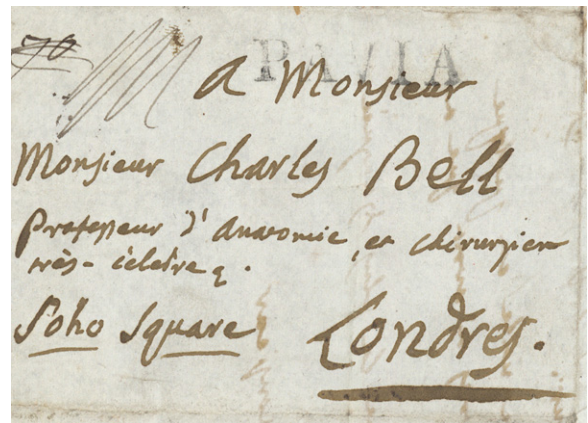 70
PAVIA
A Monsieur
Monsieur Charles Bell
Professeur d'Anatomie, et chirurgien
très-célèbre.
Soho Square
Londres.